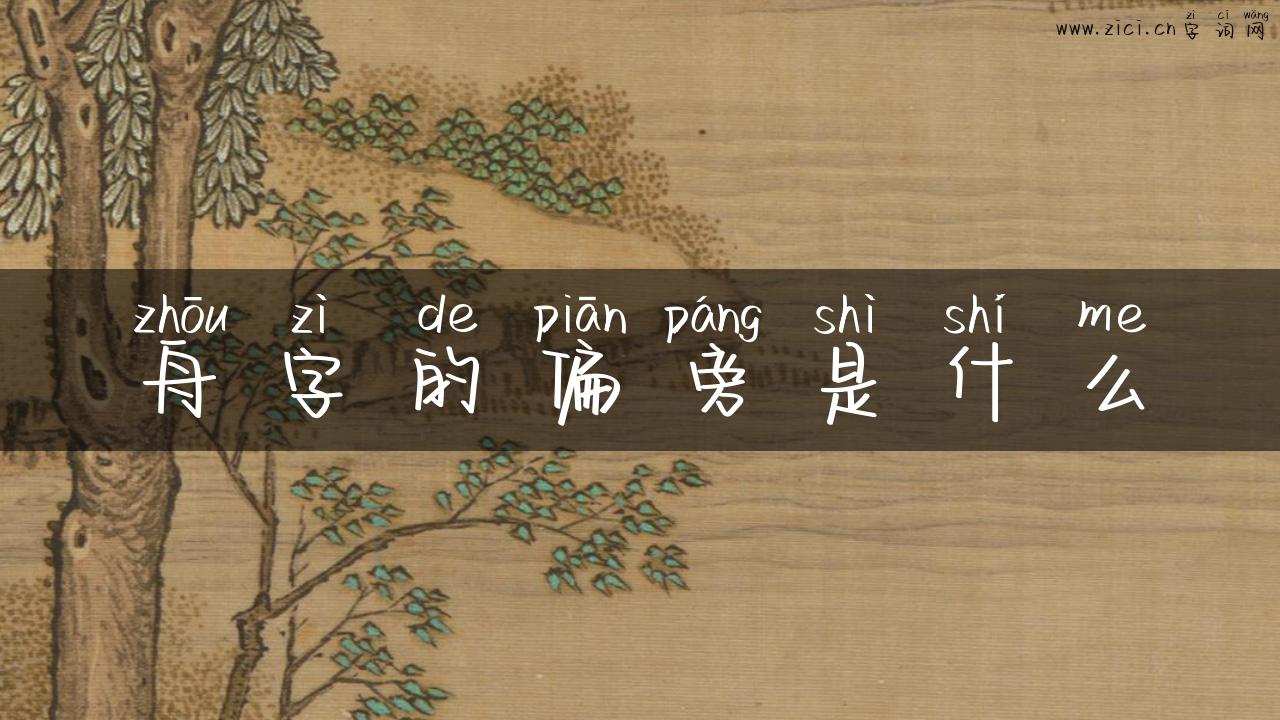 zì cí wǎng
www.zici.cn 字词网
zhōu zì de piān páng shì shí me
舟字的偏旁是什么